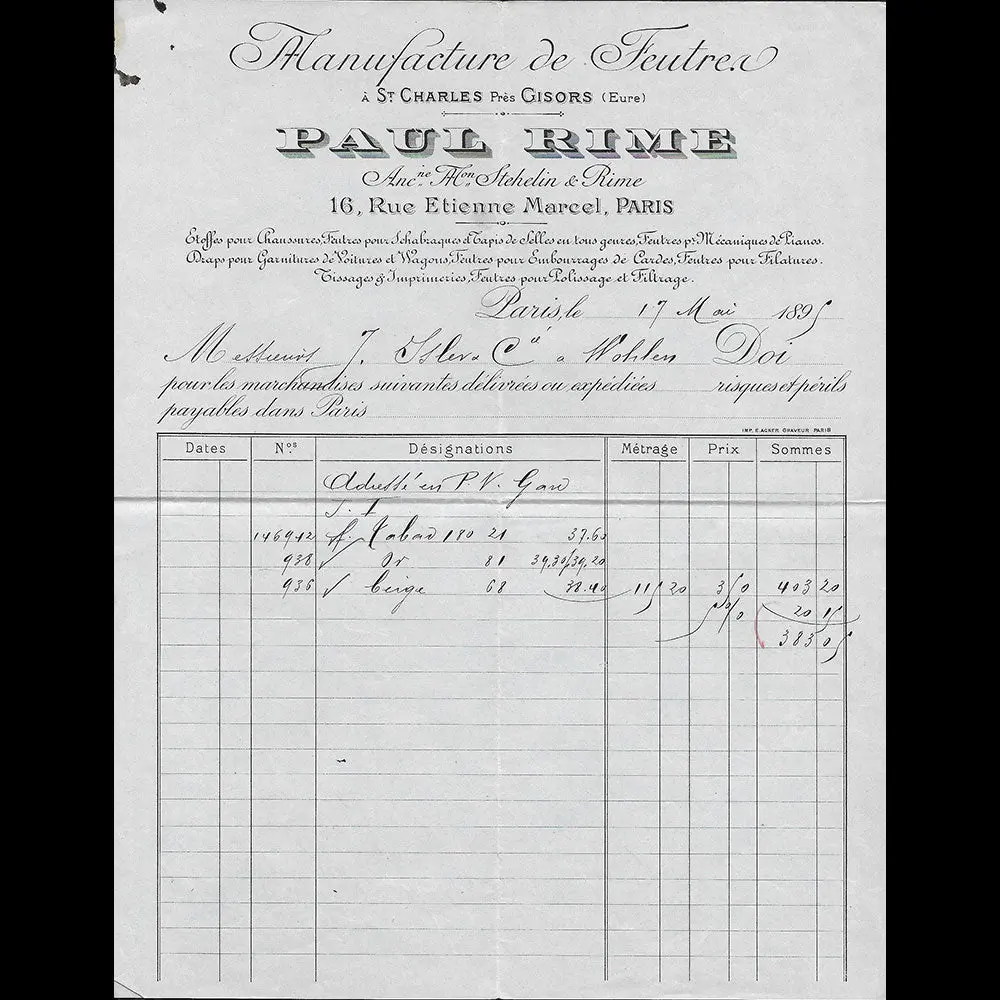 Manufacture de Feutres
À ST CHARLES Près GISORS (Eure)
PAUL RIME
Ancne Mon Stehelin & Rime
16, Rue Etienne Marcel, PARIS
Etoffes pour Chaussures, Feutres pour Schabraques et Tapis de Selles en tous genres, Feutres pr Mécaniques de Pianos.
Draps pour Garnitures de Voitures et Wagons, Feutres pour Embourrages de Cardes, Feutres pour Filatures.
Tissages & Imprimeries, Feutres pour Polissage et Filtrage.
Paris, le 17 Mai 1895
Messieurs J. Isler & Cie à Wohlen Doi
pour les marchandises suivantes délivrées ou expédiées risques et périls
payables dans Paris
IMP. E. ACKER GRAVEUR PARIS
Dates Nos Désignations Métrage Prix Sommes
Adressé en P.V. Gare
J. I
146942 Tabac 180 21 37.60
938 Or 81 39,30/39,20
936 beige 68 115 20 350 403 20
5% 20 15
383 05